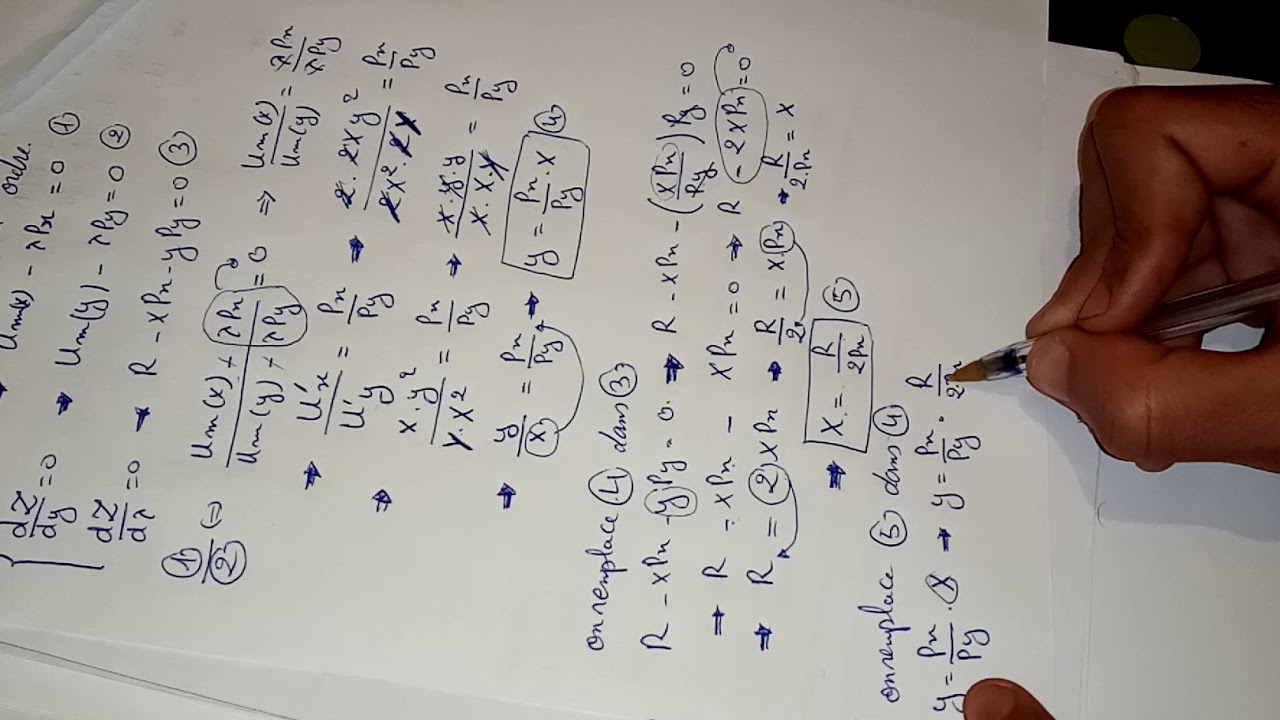 ordre.
Um(x) - λPx = 0 ①
dZ/dy = 0 → Um(y) - λPy = 0 ②
dZ/dλ = 0 → R - xPx - yPy = 0 ③
①/② ⇔ (Um(x) + λPx)/(Um(y) + λPy) = 0 ⇒ Um(x)/Um(y) = λPx/λPy
⇒ U'x/U'y = Px/Py ⇒ 2·2xy²/2x²·2x = Px/Py
⇒ x·y²/y·x² = Px/Py ⇒ x·y·y/x·x·y = Px/Py
⇒ y/x = Px/Py ⇒ y = Px/Py · x ④
on remplace ④ dans ③
R - xPx - yPy = 0 ⇒ R - xPx - (xPx/Py) Py = 0
⇒ R - xPx - xPx = 0 ⇒ R - 2xPx = 0
⇒ R = 2xPx ⇒ R/2 = xPx ⇒ R/2Px = x
⇒ x = R/2Px ⑤
on remplace ⑤ dans ④
y = Px/Py · x → y = Px/Py · R/2Px